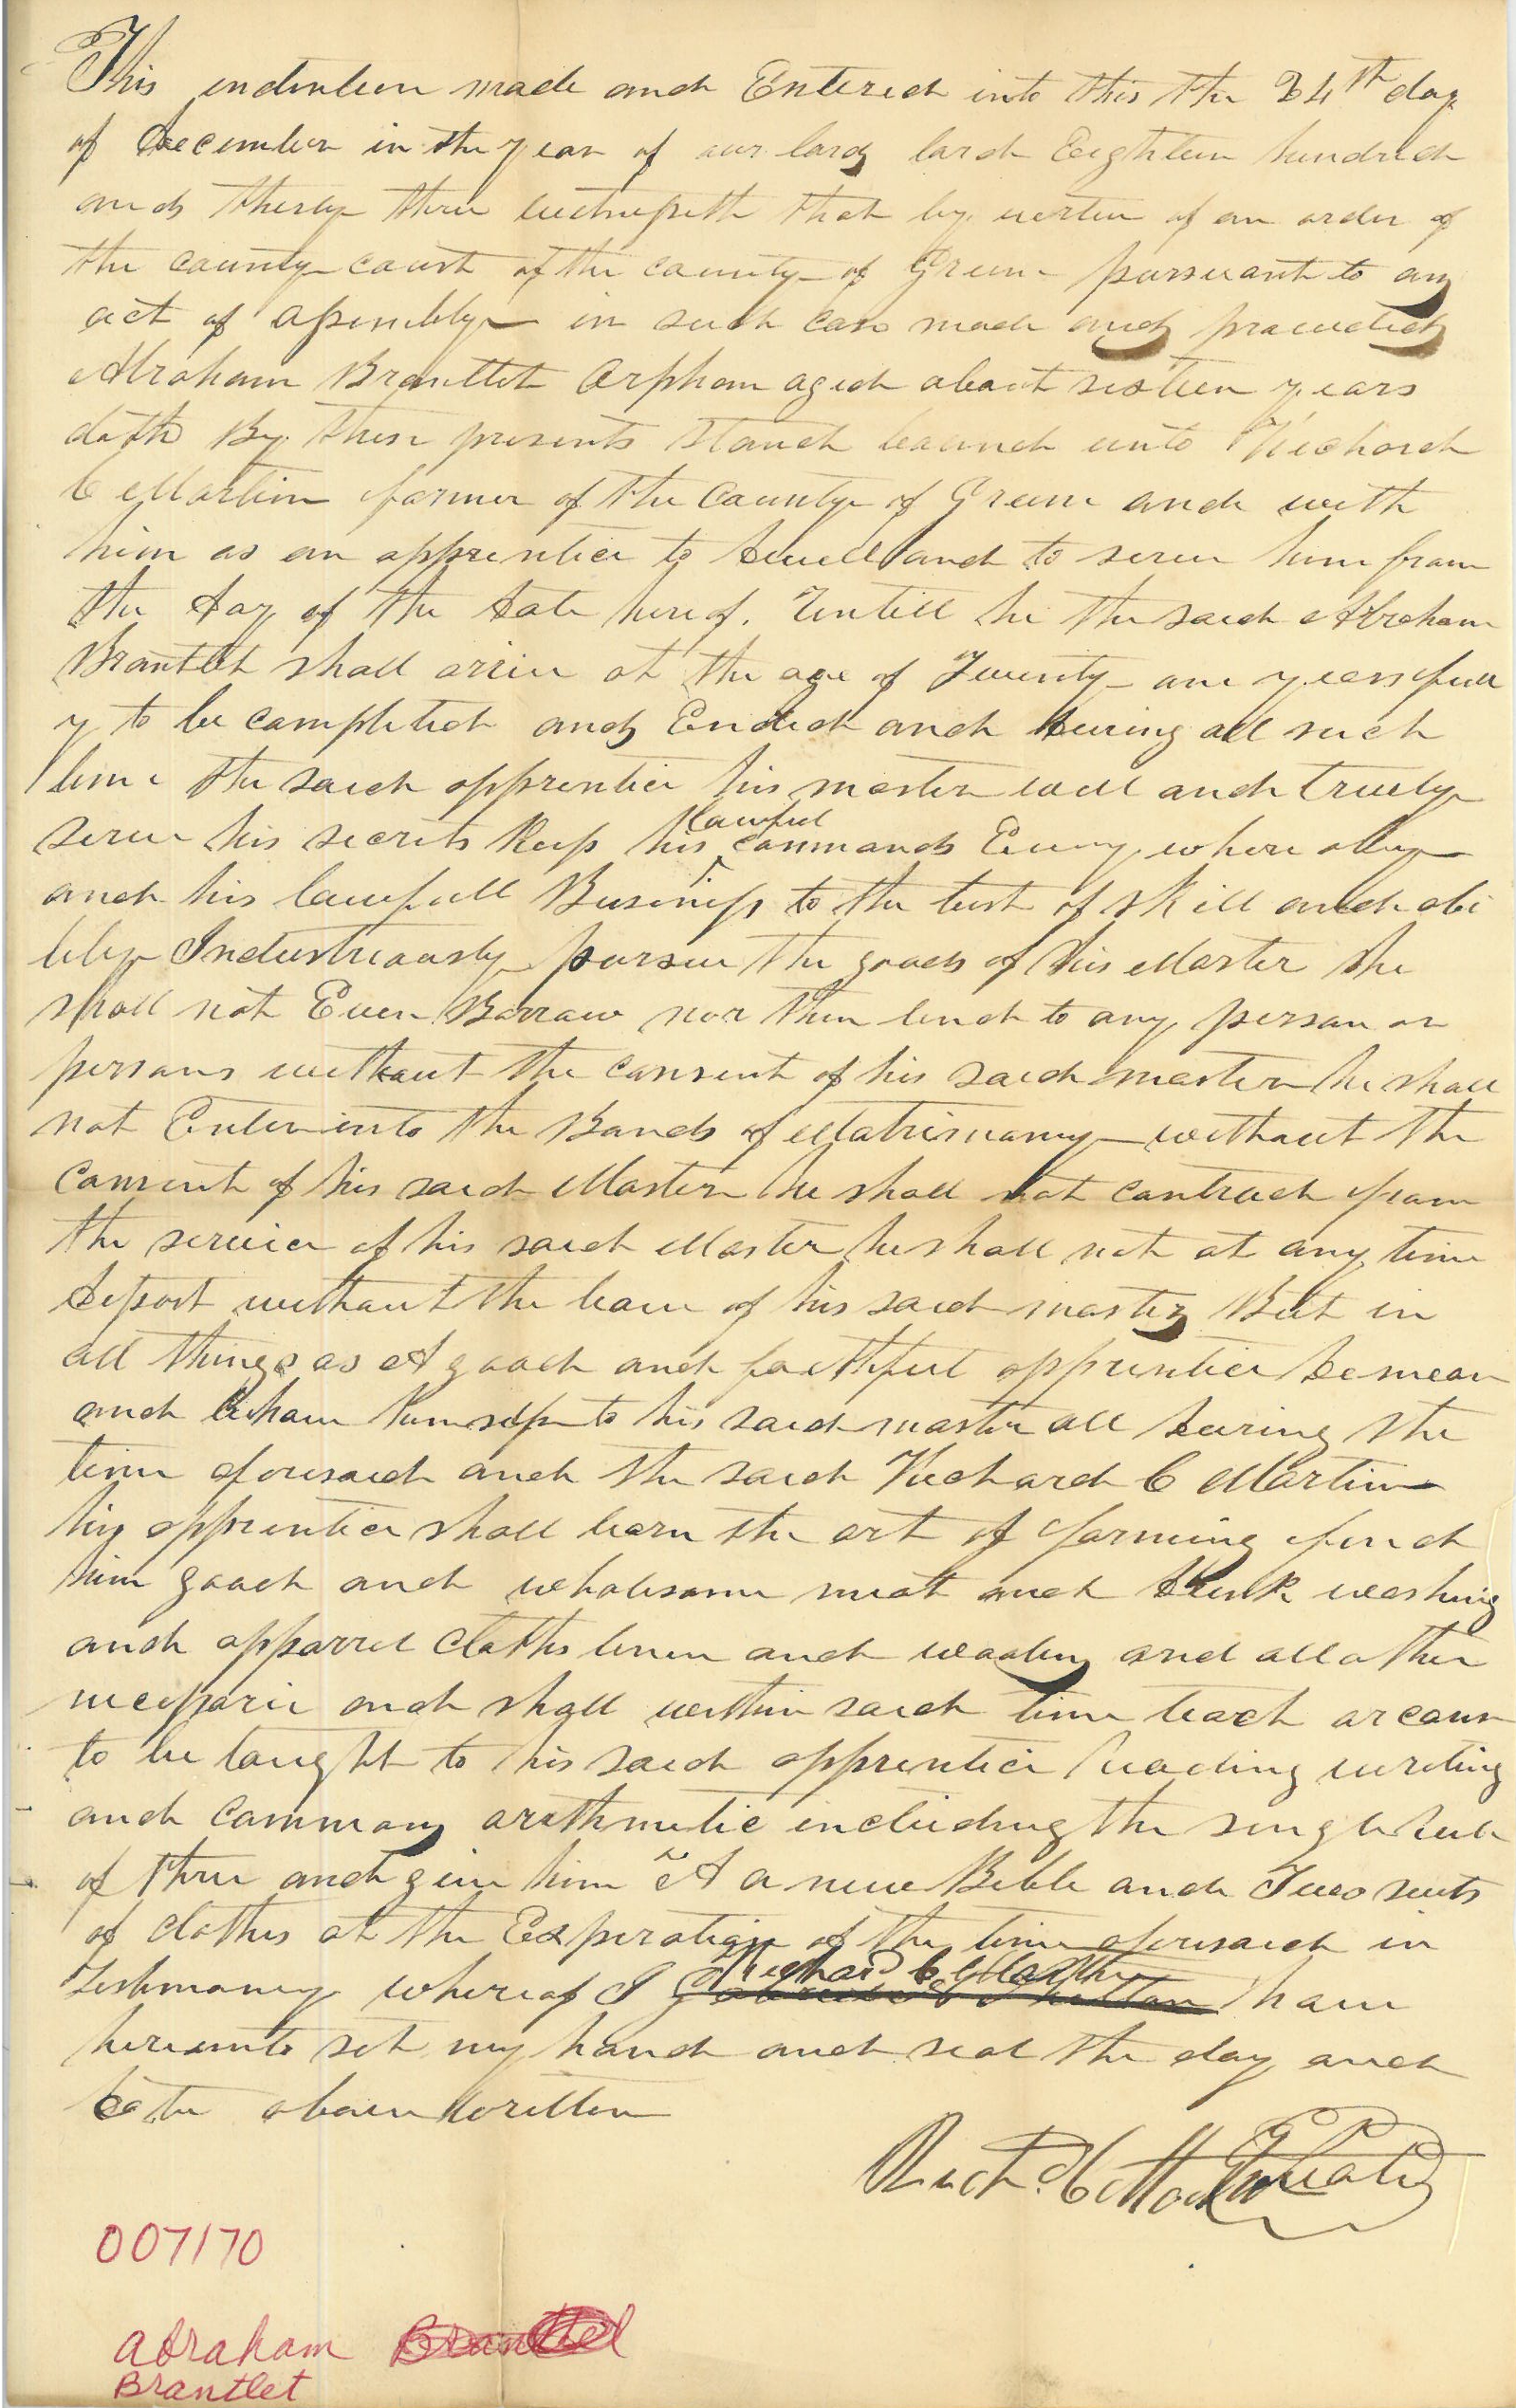 This indenture made and Entered into this the 24th day
of December in the year of our lord lord Eighteen hundred
and thirty three witnesseth that by vertue of an order of
the county court of the county of Green pursuant to an
act of assembly in such case made and provided
Abraham Brantlet orphan aged about sixteen years
doth By these presents stand bound unto Richard
C Martin farmer of the County of Green and with
him as an apprentice to dwell and to serve him from
the day of the date hereof. Untill he the said Abraham
Brantlet shall arive at the age of Twenty one years full
y to be completed and Ended and during all such
time the said apprentice his master well and truely
serve his secrets keep his lawful commands Every where obey
and his lawfull Business to the best of skill and abi
lity Industriously pursue the goods of his Master he
shall not Even Borrow nor them lend to any person or
persons without the consent of his said master he shall
not Enter into the Bands of Matrimony without the
consent of his said Master he shall not contract from
the service of his said Master he shall not at any time
depart without the leave of his said master But in
all things as A good and faithful apprentice demean
and behave himself to his said master all during the
time aforesaid and the said Richard C Martin
his apprentice shall learn the art of farming find
him good and wholesome meat and drink washing
and apparrel cloths linen and woolen and all other
necessarie and shall within said time teach or caus
to be taught to his said apprentice reading writing
and common arithmetic including the single rule
of three and give him A a new Bible and Two suits
of clothes at the Expiration of the time aforesaid in
Testimony whereof I Richard C Martin have
hereunto set my hand and seal the day and
date above written
Richd. C Martin Seal
007170
Abraham Brantlet
Brantlet